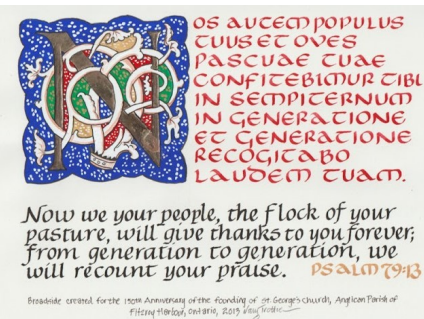 NOS AUTEM POPULUS
TUUS ET OVES
PASCUAE TUAE
CONFITEBIMUR TIBI
IN SEMPITERNUM
IN GENERATIONE
ET GENERATIONE
RECOGITABO
LAUDEM TUAM.
Now we your people, the flock of your
pasture, will give thanks to you forever;
from generation to generation, we
will recount your praise. PSALM 79:13
Broadside created for the 150th Anniversary of the founding of St. George's Church, Anglican Parish of
Fitzroy Harbour, Ontario, 2013